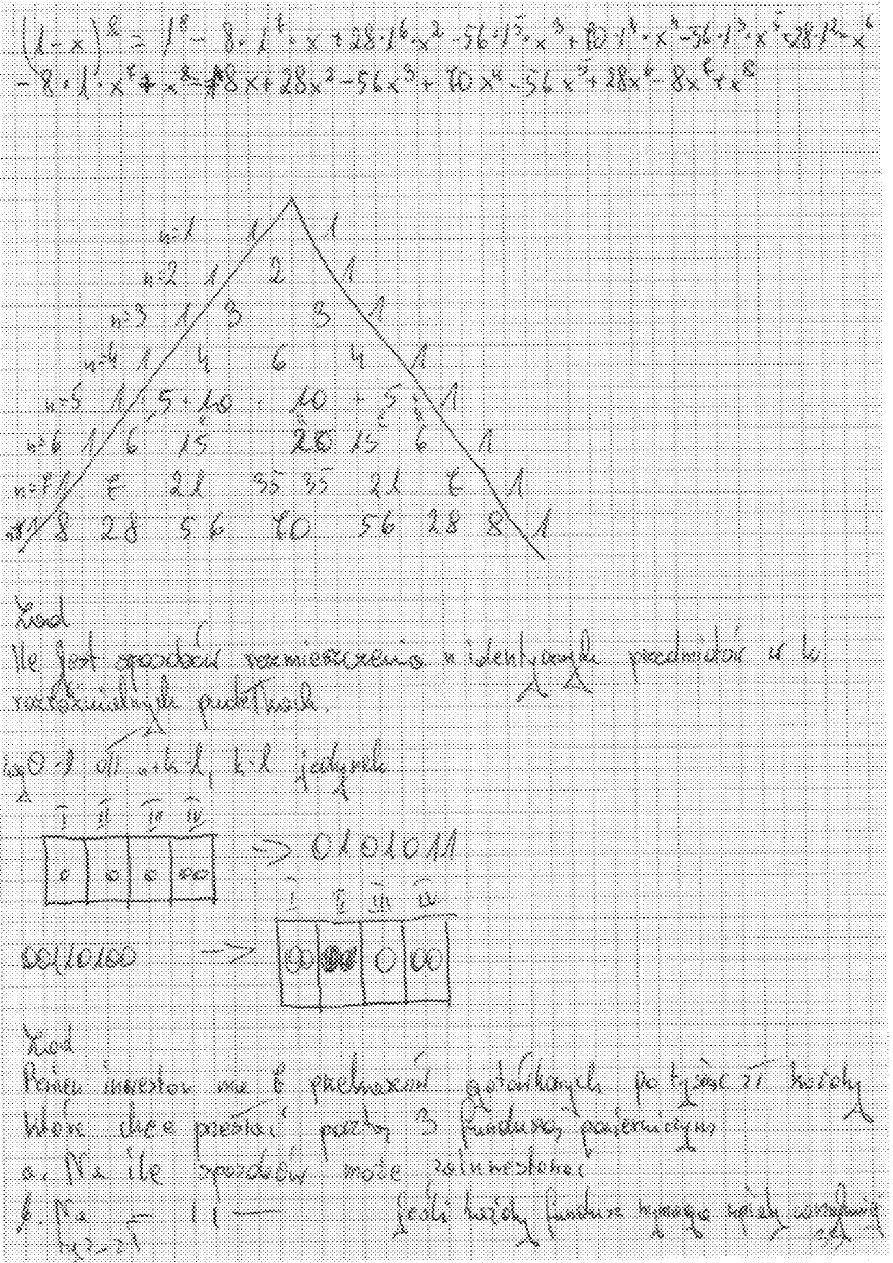 (1-x)^8 = 1^8 - 8·1^7·x + 28·1^6·x^2 - 56·1^5·x^3 + 70·1^4·x^4 - 56·1^3·x^5 + 28·1^2·x^6
- 8·1·x^7 + x^8 = 1 - 8x + 28x^2 - 56x^3 + 70x^4 - 56x^5 + 28x^6 - 8x^7 + x^8
n=1 1 1
n=2 1 2 1
n=3 1 3 3 1
n=4 1 4 6 4 1
n=5 1 5 + 10 10 + 5 1
n=6 1 6 15 20 15 6 1
n=7 1 7 21 35 35 21 7 1
n=8 1 8 28 56 70 56 28 8 1
Zad
Ile jest sposobów rozmieszczenia n identycznych przedmiotów w k
rozróżnialnych pudełkach.
k-1 jedynek
I II III IV
0 0 0 00 -> 0101011
I II III IV
00110100 -> 00 0 00
Zad
Pewien inwestor ma 7 przekazów gotówkowych po tysiąc zł każdy
które chce przesłać poczty 3 funduszy powierniczym
a. Na ile sposobów może zainwestować
b. Na — 11 — jeśli każdy fundusz wymaga